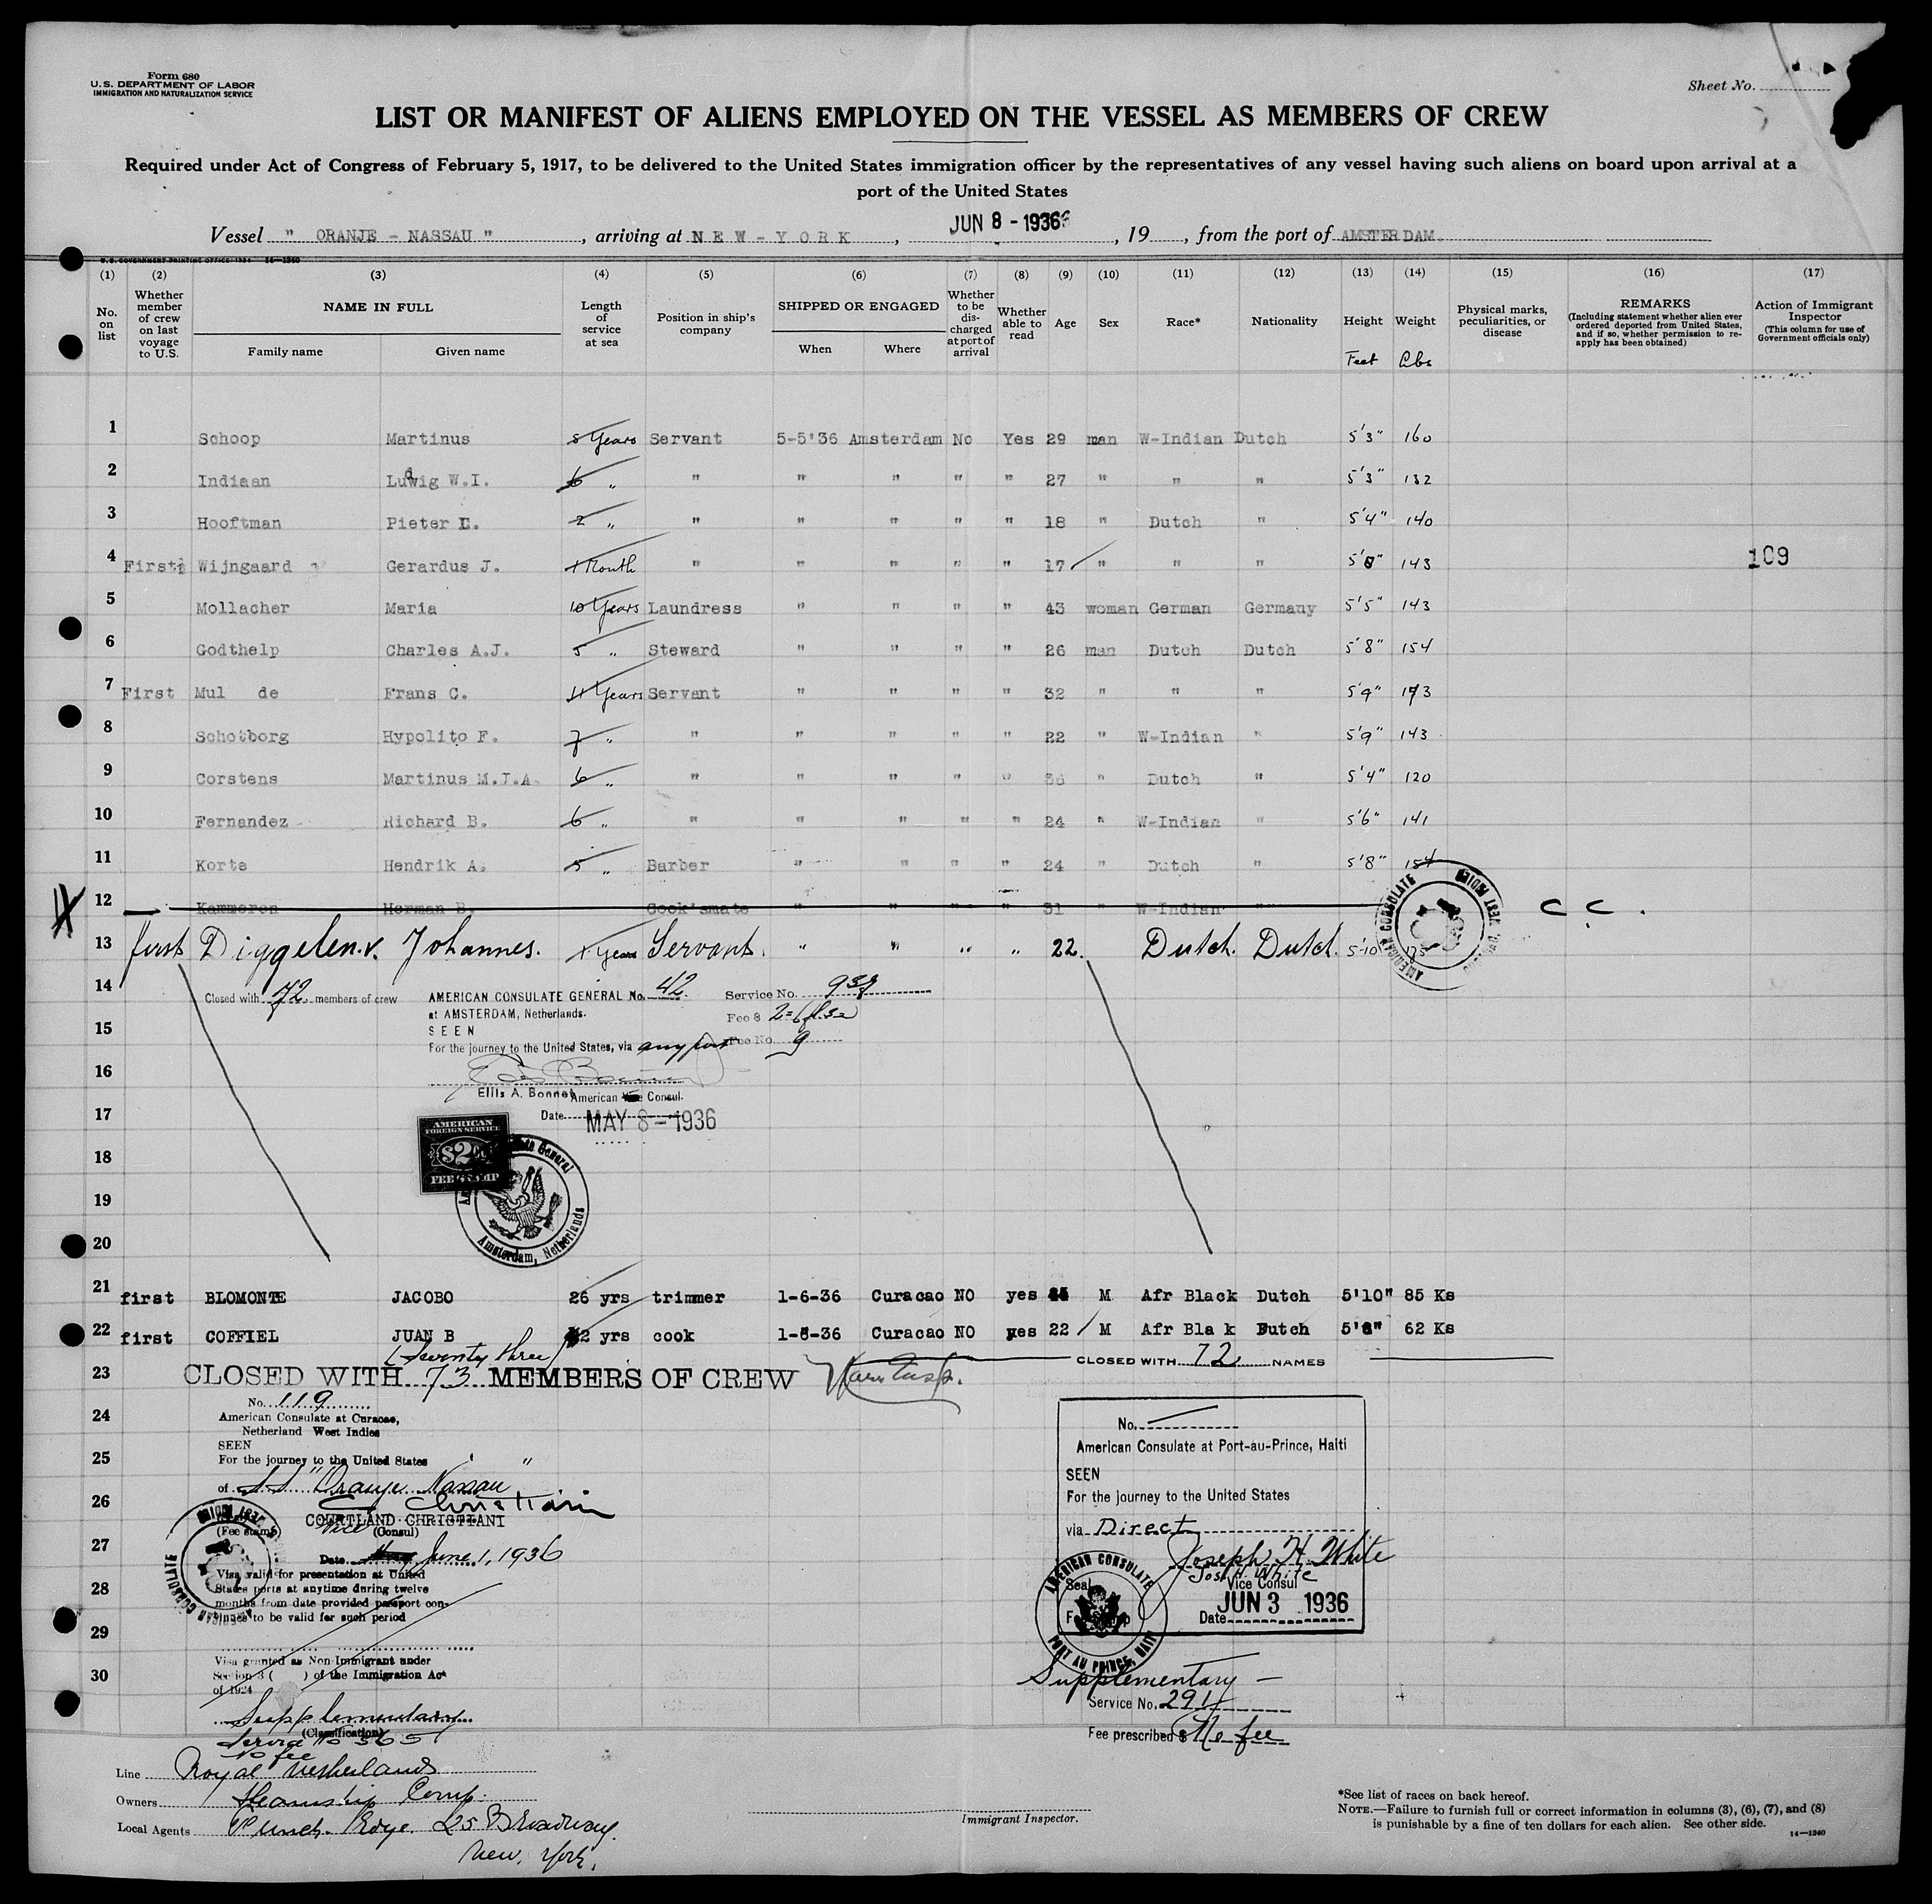 Form 680
U.S. DEPARTMENT OF LABOR
IMMIGRATION AND NATURALIZATION SERVICE
Sheet No.
LIST OR MANIFEST OF ALIENS EMPLOYED ON THE VESSEL AS MEMBERS OF CREW
Required under Act of Congress of February 5, 1917, to be delivered to the United States immigration officer by the representatives of any vessel having such aliens on board upon arrival at a
port of the United States
Vessel " ORANJE - NASSAU ", arriving at NEW-YORK, JUN 8 - 1936, 19, from the port of AMSTERDAM.
U.S. GOVERNMENT PRINTING OFFICE 14-1240
(1) (2) (3) (4) (5) (6) (7) (8) (9) (10) (11) (12) (13) (14) (15) (16) (17)
No. on list
Whether member of crew on last voyage to U.S.
NAME IN FULL
Family name Given name
Length of service at sea
Position in ship's company
SHIPPED OR ENGAGED
When Where
Whether to be discharged at port of arrival
Whether able to read
Age Sex Race* Nationality
Height Feet
Weight Lbs
Physical marks, peculiarities, or disease
REMARKS
(Including statement whether alien ever ordered deported from United States, and if so, whether permission to re-apply has been obtained)
Action of Immigrant Inspector
(This column for use of Government officials only)
1 Schoop Martinus 8 Years Servant 5-5'36 Amsterdam No Yes 29 man W-Indian Dutch 5'3" 160
2 Indiaan Ludwig W.I. 6 " " " " " " 27 " " " 5'3" 132
3 Hooftman Pieter 2 " " " " " " 18 " Dutch " 5'4" 140
4 First Wijngaard Gerardus J. 1 Month " " " " " 17 " " " 143 109
5 Mollacher Maria 10 Years Laundress " " " " 43 woman German Germany 5'5" 143
6 Godthelp Charles A.J. 5 " Steward " " " " 26 man Dutch Dutch 5'8" 154
7 First Mul de Frans C. 11 Years Servant " " " " 32 " " " 5'9" 173
8 Schotborg Hypolito F. 7 " " " " " " 22 " W-Indian " 5'9" 143
9 Corstens Martinus M.J.A. 6 " " " " " " 36 " Dutch " 5'4" 120
10 Fernandez Richard B. 6 " " " " " " 24 " W-Indian " 5'6" 141
11 Korte Hendrik A. 5 " Barber " " " " 24 " Dutch " 5'8" 154
12 Kammeron Herman B. Cook'smate " " " " 31 " W-Indian " C C.
13 first Diggelen.v. Johannes. 1 Years Servant. " " " " 22. Dutch. Dutch. 5'10
AMERICAN CONSULATE
14
Closed with 72 members of crew
AMERICAN CONSULATE GENERAL No. 42
Service No. 937
at AMSTERDAM, Netherlands.
Fee $
15
SEEN
For the journey to the United States, via any port
Fee No. 9
16
Ellis A. Bonnet American Vice Consul.
17
Date MAY 8-1936
AMERICAN
FOREIGN SERVICE
$2.00
FEE STAMP
18
General
Amsterdam, Netherlands
19
20
21 first BLOMONTE JACOBO 26 yrs trimmer 1-6-36 Curacao NO yes 45 M Afr Black Dutch 5'10" 85 Ks
22 first COFFIEL JUAN B 2 yrs cook 1-6-36 Curacao NO yes 22 M Afr Bla k Dutch 62 Ks
(Seventy three)
CLOSED WITH 72 NAMES
23 CLOSED WITH 73 MEMBERS OF CREW
No. 119
24
American Consulate at Curacao,
Netherland West Indies
SEEN
25
For the journey to the United States
of S.S "Oranje Nassau"
26
C Christiani
COURTLAND CHRISTIANI
(Fee stamp) Vice (Consul)
27
Date June 1, 1936
Visa valid for presentation at United
28
States ports at anytime during twelve
months from date provided passport con-
tinues to be valid for such period
29
Visa granted as Non-Immigrant under
30
Section 3 ( ) of the Immigration Act
of 1924
Supplementary
(Classification)
Service No 365
No fee
AMERICAN CONSULATE
No.
American Consulate at Port-au-Prince, Haiti
SEEN
For the journey to the United States
via Direct
Joseph H. White
Jos. H. White
Vice Consul
Seal
JUN 3 1936
Date
AMERICAN CONSULATE
PORT AU PRINCE, HAITI
Supplementary -
Service No. 291
Fee prescribed $ No fee
Line Royal Netherlands
Owners Steamship Comp.
Local Agents Funch. Edye. 25 Broadway.
New. York.
Immigrant Inspector.
*See list of races on back hereof.
NOTE.—Failure to furnish full or correct information in columns (3), (6), (7), and (8)
is punishable by a fine of ten dollars for each alien. See other side.
14-1240